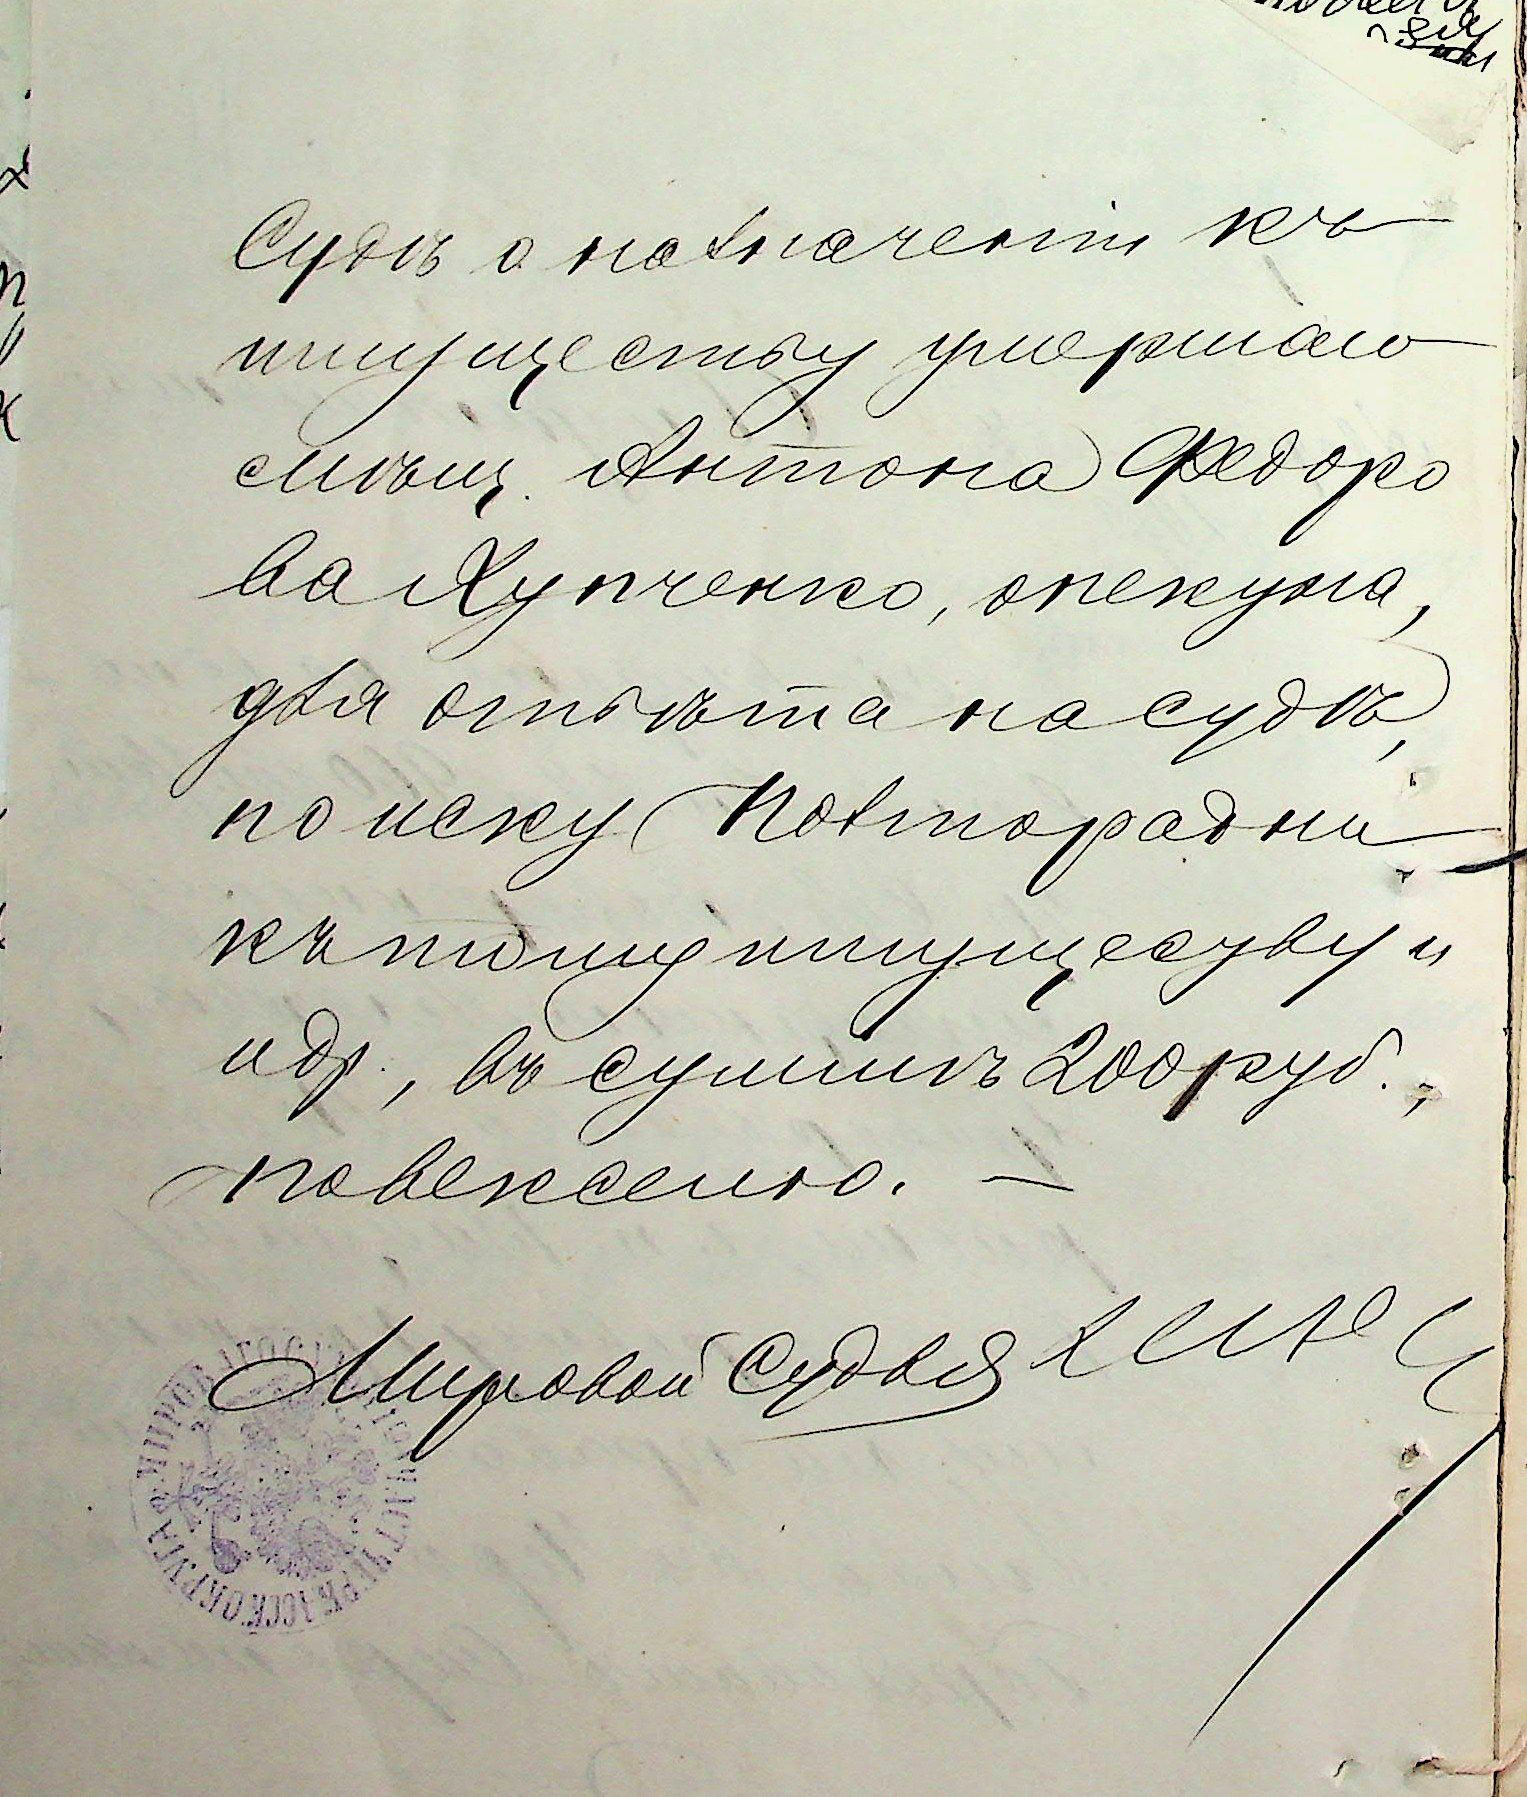 Судъ о назначеніи къ
имуществу умершаго
мѣщ. Антона Федоро
ва Купченко, опекуна,
для отвѣта на судѣ,
по иску Полторадни
къ тому имуществу и
и др., въ суммѣ 200 руб.,
по векселю. —
Мировой Судья
МИРОВ ОКРУГА